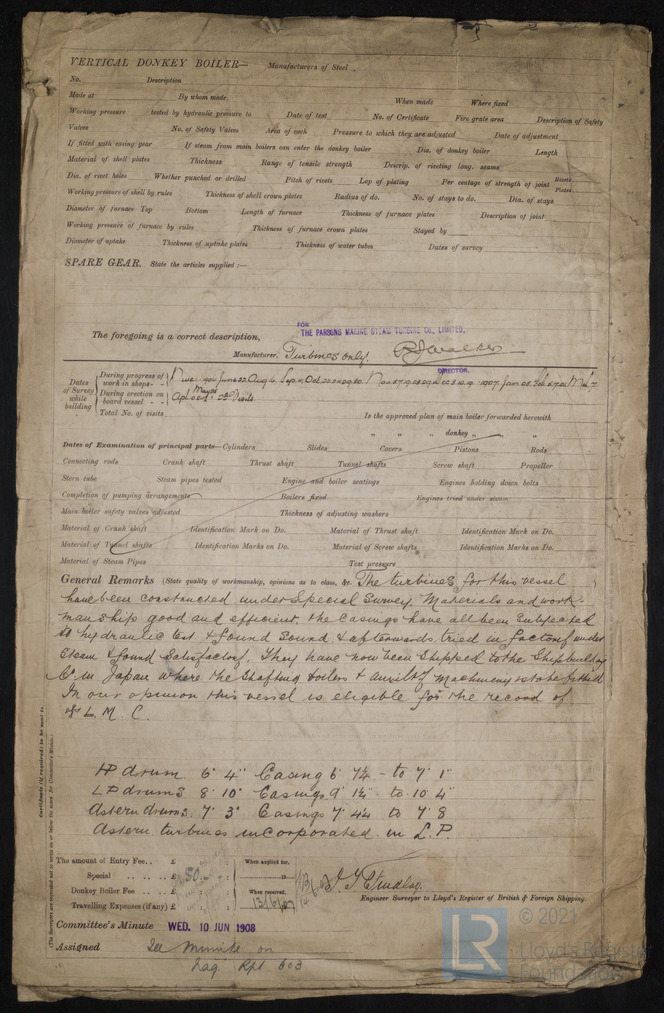 VERTICAL DONKEY BOILER— Manufacturers of Steel
No. Description
Made at By whom made When made Where fixed
Working pressure tested by hydraulic pressure to Date of test No. of Certificate Fire grate area Description of Safety
Valves No. of Safety Valves Area of each Pressure to which they are adjusted Date of adjustment
If fitted with easing gear If steam from main boilers can enter the donkey boiler Dia. of donkey boiler Length
Material of shell plates Thickness Range of tensile strength Descrip. of riveting long. seams
Dia. of rivet holes Whether punched or drilled Pitch of rivets Lap of plating Per centage of strength of joint Rivets Plates
Working pressure of shell by rules Thickness of shell crown plates Radius of do. No. of stays to do. Dia. of stays
Diameter of furnace Top Bottom Length of furnace Thickness of furnace plates Description of joint
Working pressure of furnace by rules Thickness of furnace crown plates Stayed by
Diameter of uptake Thickness of uptake plates Thickness of water tubes Dates of survey
SPARE GEAR. State the articles supplied :—
FOR
THE PARSONS MARINE STEAM TURBINE CO., LIMITED.
The foregoing is a correct description,
Manufacturer. Turbines only.
DIRECTOR.
Dates of Survey while building
During progress of work in shops - -
During erection on board vessel - - -
Total No. of visits
Is the approved plan of main boiler forwarded herewith
" " " donkey " " "
Dates of Examination of principal parts—Cylinders Slides Covers Pistons Rods
Connecting rods Crank shaft Thrust shaft Tunnel shafts Screw shaft Propeller
Stern tube Steam pipes tested Engine and boiler seatings Engines holding down bolts
Completion of pumping arrangements Boilers fixed Engines tried under steam
Main boiler safety valves adjusted Thickness of adjusting washers
Material of Crank shaft Identification Mark on Do. Material of Thrust shaft Identification Mark on Do.
Material of Tunnel shafts Identification Marks on Do. Material of Screw shafts Identification Marks on Do.
Material of Steam Pipes Test pressure
General Remarks (State quality of workmanship, opinions as to class, &c. The turbines for this vessel
have been constructed under Special Survey. Materials and work-
manship good and efficient. the casings have all been subjected
to hydraulic test & found sound & afterwards tried in factory under
steam & found satisfactory. They have now been shipped to the Shipbuilding
Co in Japan where the shafting boilers & auxily machinery is to be fitted
In our opinion this vessel is eligible for the record of
L. M. C.
HP drum 6' 4" Casing 6' 7¼ - to 7' 1"
LP drums 8' 10" Casings 9' 1½ to 10' 4"
Astern drums. 7' 3" Casings 7' 4¼ to 7' 8
Astern turbines incorporated in L.P.
Certificate (if required) to be sent to
(The Surveyors are requested not to write on or below the space for Committee's Minute.)
The amount of Entry Fee . . £ When applied for,
Special . . . . . . £ 50
Donkey Boiler Fee . . . £ When received,
Travelling Expenses (if any) £ 13/6/07
Engineer Surveyor to Lloyd's Register of British & Foreign Shipping.
Committee's Minute WED. 10 JUN 1908
Assigned See Minute on
Nag. Rpt 603
© 2021
LR Lloyd's Register
Foundation